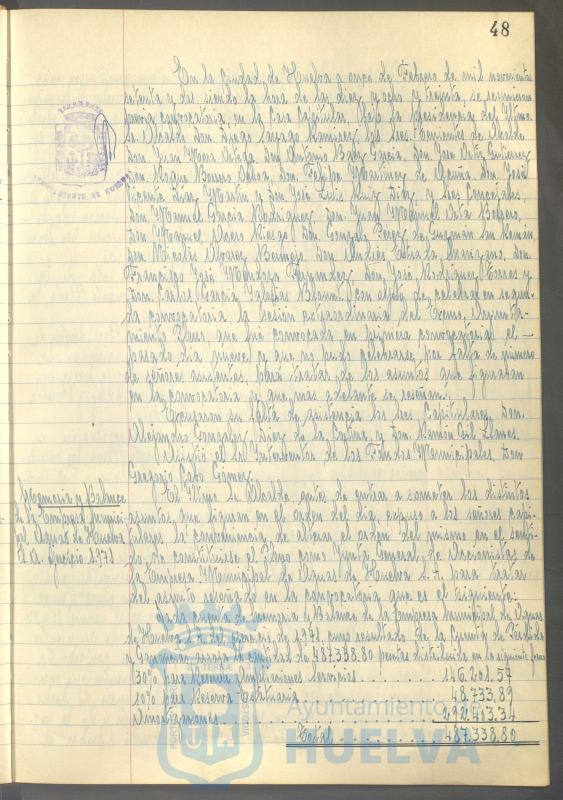 48
En la Ciudad de Huelva a once de Febrero de mil novecientos
setenta y dos siendo la hora de las diez y ocho y treinta, se reunieron
previa convocatoria, en la Casa Capitular, bajo la Presidencia del Iltmo.
Sr. Alcalde Don Diego Sayago Ramirez, los Sres. Tenientes de Alcalde
Don Juan Mora Ortega, Don Antonio Baez Garcia, Don José Ortiz Gutierrez
Don Roque Barrero Ochoa, Don Felipe Martinez de Acuña, Don José
Vicente Diaz Martin y Don José Luis Ruiz Diaz, y Sres. Concejales,
Don Manuel Garcia Rodriguez, Don Juan Manuel Orta Borrero,
Don Manuel Oliver Riesgo, Don Gonzalo Perez de Guzmán San Román
Don Nicolás Alvarez Bermejo, Don Andrés Estrada Manzano, Don
Francisco José Mendoza Fernandez, Don José Rodriguez Torres y
Don Carlos Garcia Izalatías Blount, con objeto de celebrar en segun-
da convocatoria, la sesión extraordinaria del Excmo. Ayunta-
miento Pleno, que fué convocada en primera convocatoria el
pasado dia nueve y que no pudo celebrarse por falta de número
de señores asistentes, para tratar de los asuntos que figuraban
en la convocatoria y que mas adelante se reseñan.
Excusaron su falta de asistencia los Sres. Capitulares, Don
Alejandro Gonzalez y Diez de la Cortina y Don Ramón Gil Llanes.
Asistió el Sr. Interventor de los Fondos Municipales, Don
Gregorio Cabo Gómez.
Memoria y Balance
de la Empresa Munici-
pal Aguas de Huelva
S.A. ejercicio 1971
El Iltmo. Sr. Alcalde antes de entrar a someter los distintos
asuntos que figuran en el orden del dia, expuso a los señores capi-
tulares, la conveniencia de alterar el orden del mismo en el senti-
do de constituirse el Pleno como Junta General de Accionistas de
la Empresa Municipal de Aguas de Huelva S.A. para tratar
del asunto reseñado en la convocatoria que es el siguiente:
Dada cuenta de Memoria y Balance de la Empresa Municipal de Aguas
de Huelva S.A. del ejercicio de 1971 cuyo resultado de la Cuenta de Perdidas
y Ganancias arroja un total de 487.338.80 pesetas distribuida en la siguiente forma
30% para Servicios . . . . 146.201.57
10% para Reserva Estatutaria . . . . 48.733,89
. . . . 292.403.34
Total . . . . 487.338.80
Ayuntamiento de
HUELVA